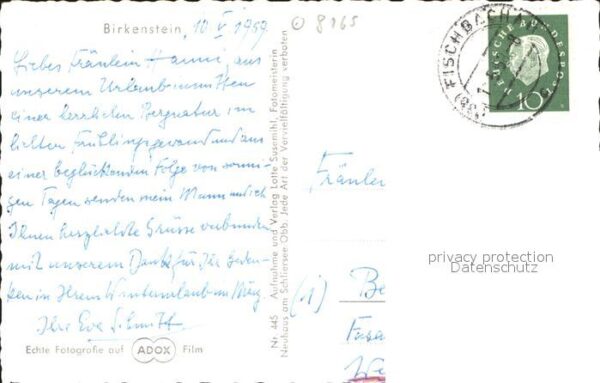 Birkenstein, 10 V 1959
8165
Liebes Fräulein Hanni, aus
unserem Urlaub inmitten
einer herrlichen Bergnatur im
lichten Frühlingsgewand und am
einer beglückenden Folge von sonni-
gen Tagen senden mein Mann und ich
Ihnen herzlichste Grüsse verbunden
mit unserem Dank für Ihr Geden-
ken in Ihrem Winterurlaub im März.
Ihre Eva Schmitt
Echte Fotografie auf ADOX Film
Nr. 445 Aufnahme und Verlag Lotte Susemihl, Fotomeisterin
Neuhaus am Schliersee Obb. Jede Art der Vervielfältigung verboten
FISCHBACHAU
DEUTSCHE BUNDESPOST
10
Fräulein
(1)
privacy protection
Datenschutz